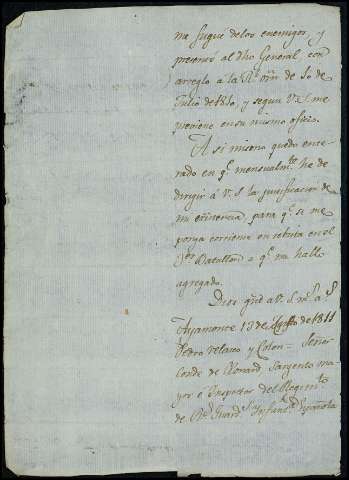 ma fugue delos enemigos, y
presenté al dho General, con
arreglo a la Rl orñ de 30 de
Julio de 1810, y segun V.S. me
previene en su mismo oficio.
A si mismo quedo ente-
rado en qe mensualmte he de
dirigir á V.S. la justificacion de
mi existencia para qe se me
ponga corriente en revista en el
3er Batallon a qe me hallo
agregado.
Dios gue a V.S. ms as
Ayamonte 13 de Agosto de 1811
Pedro Velasco y Colon = Señor
Conde de Sargento ma-
yor é Inspector del Regimto
de Rs Guards Infanta Española